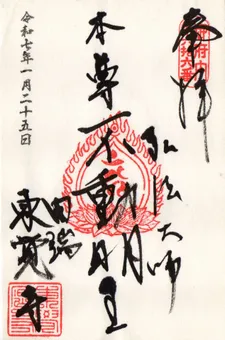 奉拝
弘法大師
本尊不動明王
田端
東覚寺
令和七年一月二十五日